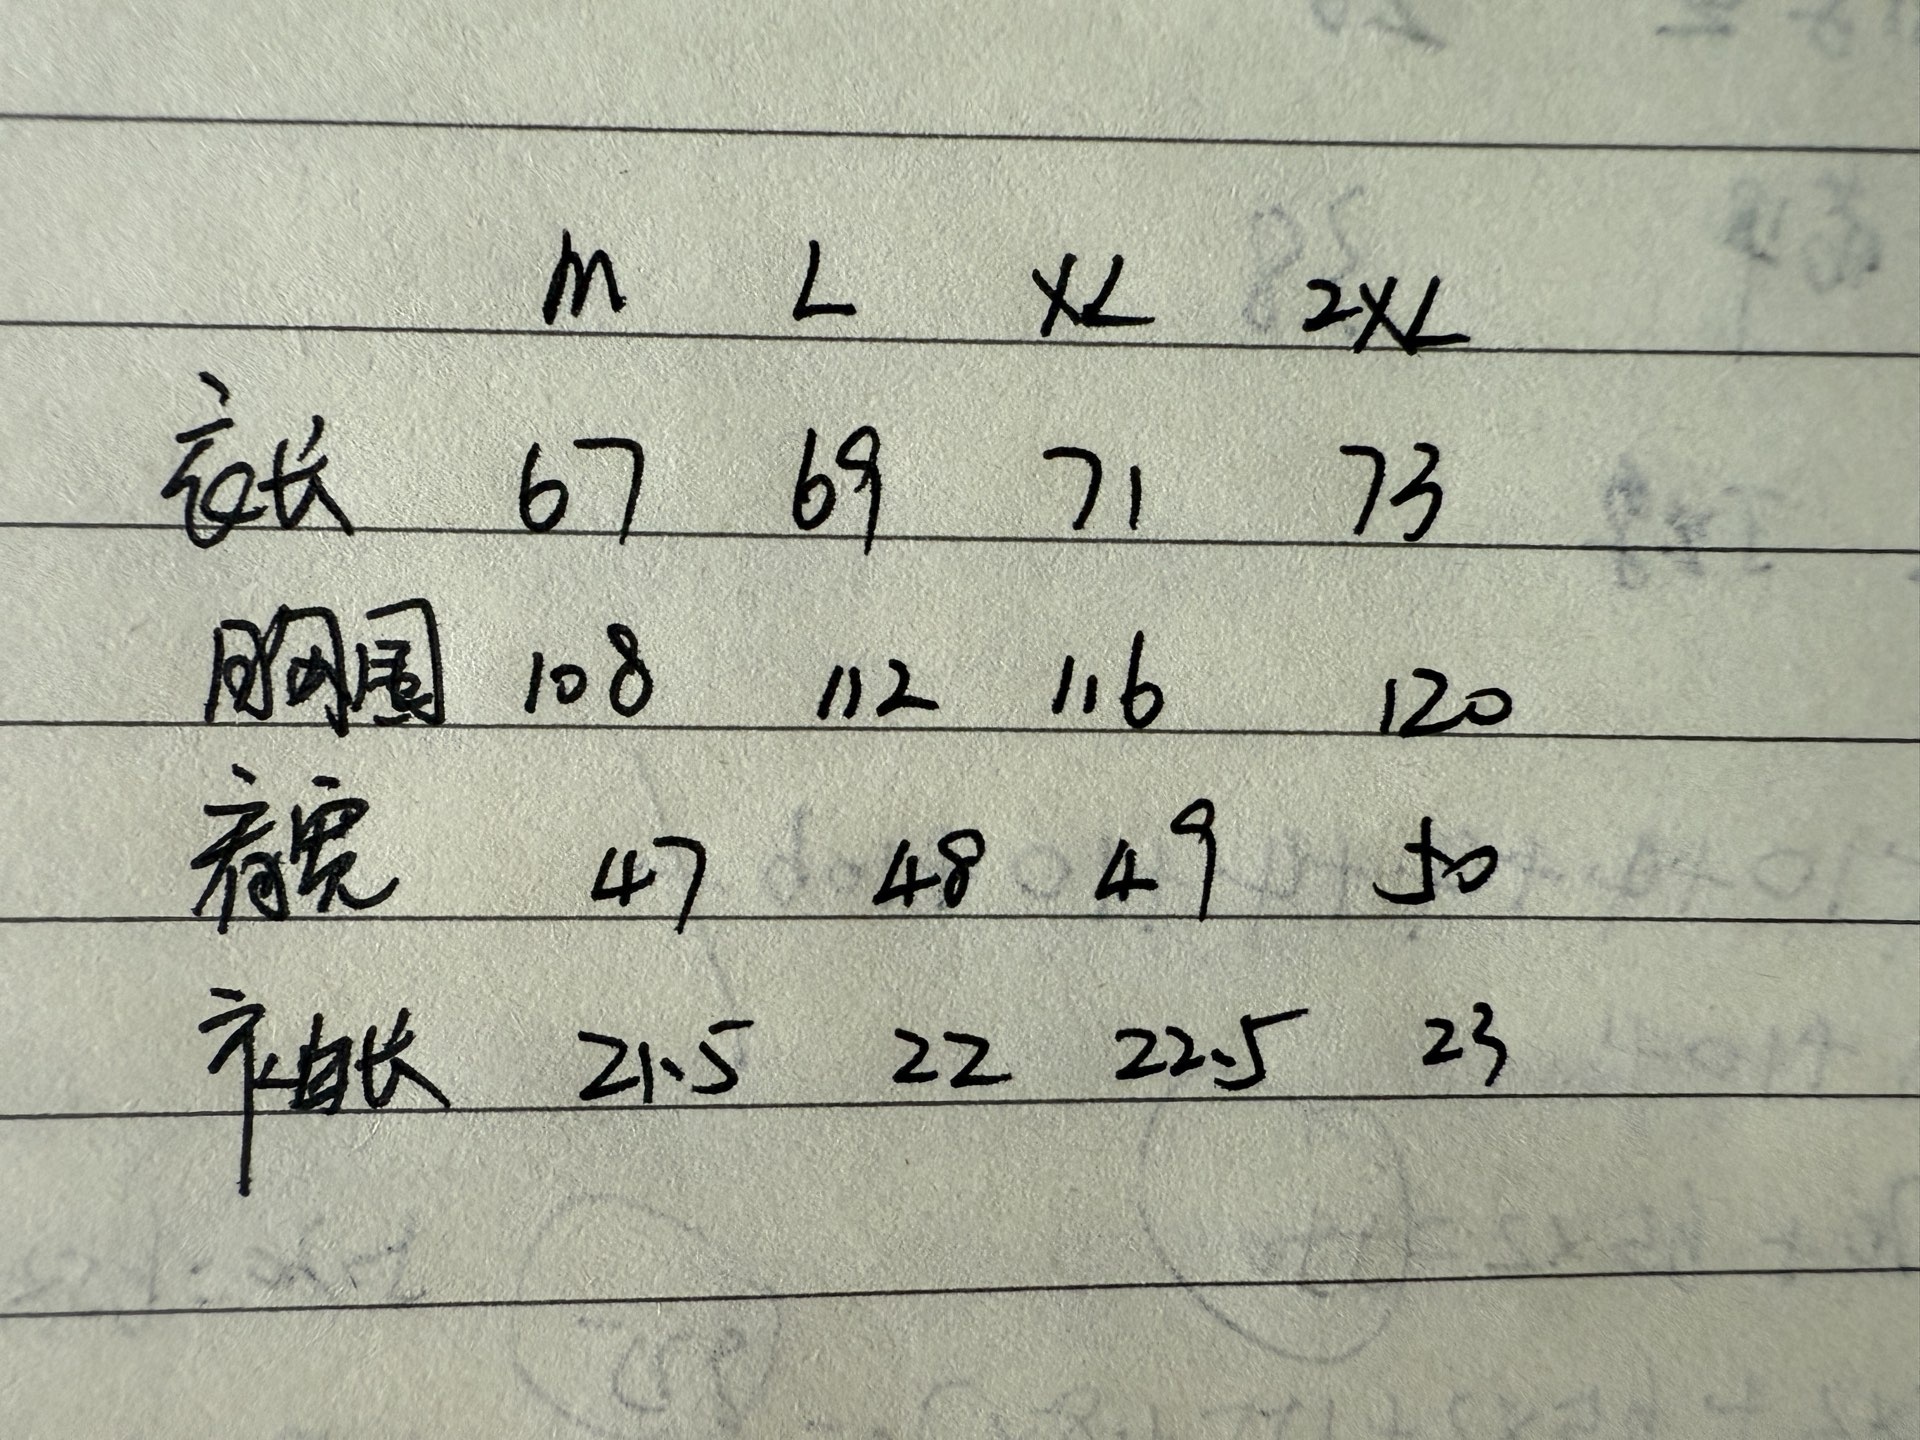 M L XL 2XL
衣长 67 69 71 73
胸围 108 112 116 120
肩宽 47 48 49 50
袖长 21.5 22 22.5 23